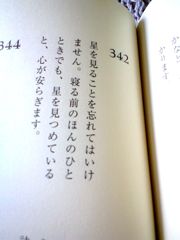 かなと
かります
342
星を見ることを忘れてはいけ
ません。寝る前のほんのひと
ときでも、星を見つめている
と、心が安らぎます。
344